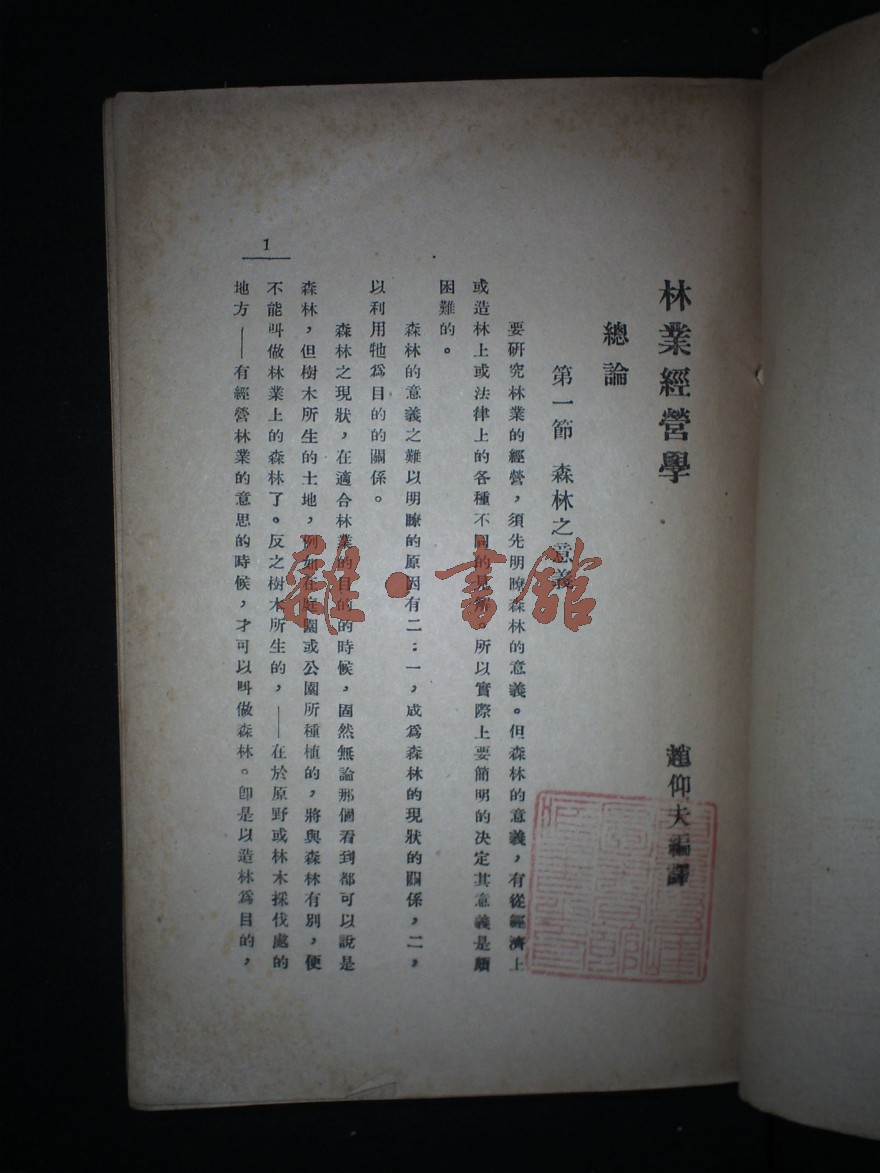 林業經營學
趙仰夫編譯
總論
第一節　森林之意義
要研究林業的經營，須先明瞭森林的意義。但森林的意義，有從經濟上
或造林上或法律上的各種不同的見解。所以實際上要簡明的決定其意義是頗
困難的。
森林的意義之難以明瞭的原因有二：一，成爲森林的現狀的關係，二，
以利用牠爲目的的關係。
森林之現狀，在適合林業的目的的時候，固然無論那個看到都可以說是
森林，但樹木所生的土地，例如在庭園或公園所種植的，將與森林有別，便
不能叫做林業上的森林了。反之樹木所生的，——在於原野或林木採伐處的
地方——有經營林業的意思的時候，才可以叫做森林。卽是以造林爲目的，
1
雜·書館